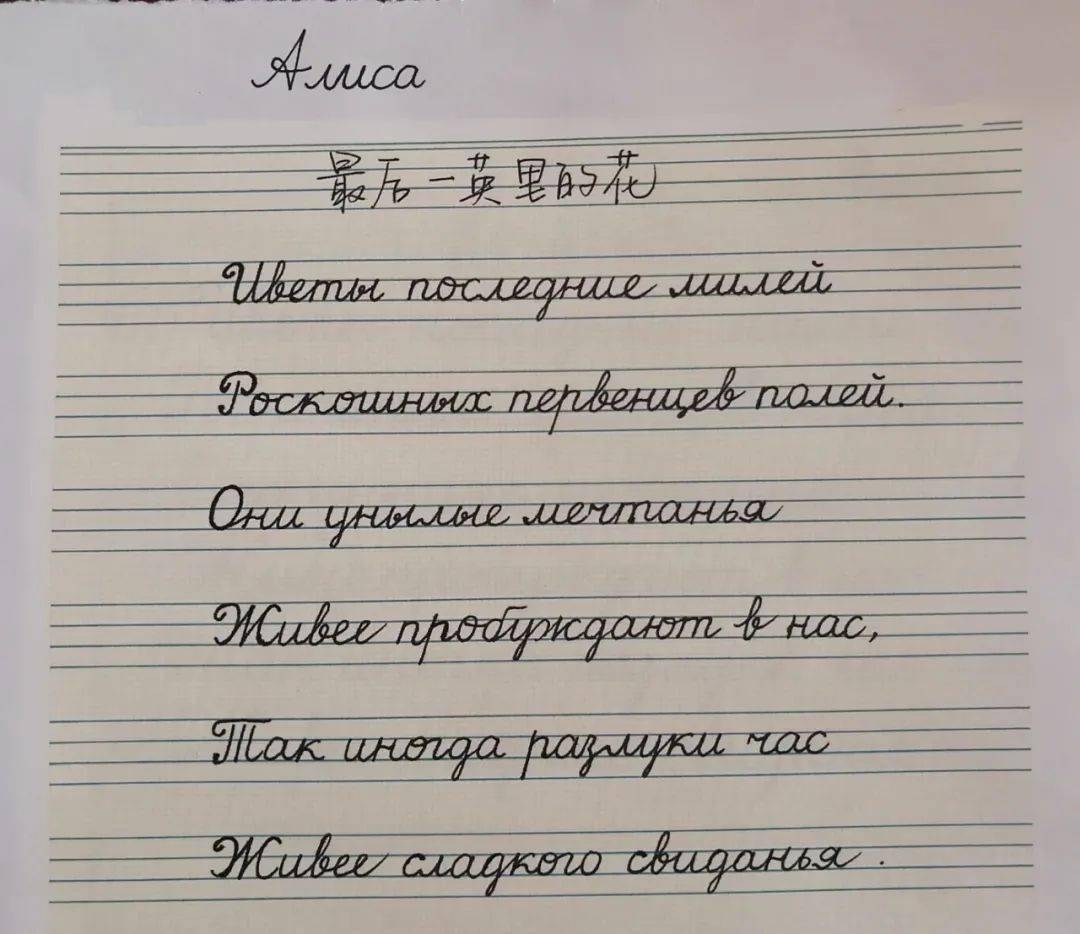 Алиса
最后一英里的花
Цветы последние милей
Роскошных первенцев полей.
Они унылые мечтанья
Живее пробуждают в нас,
Так иногда разлуки час
Живее сладкого свиданья.